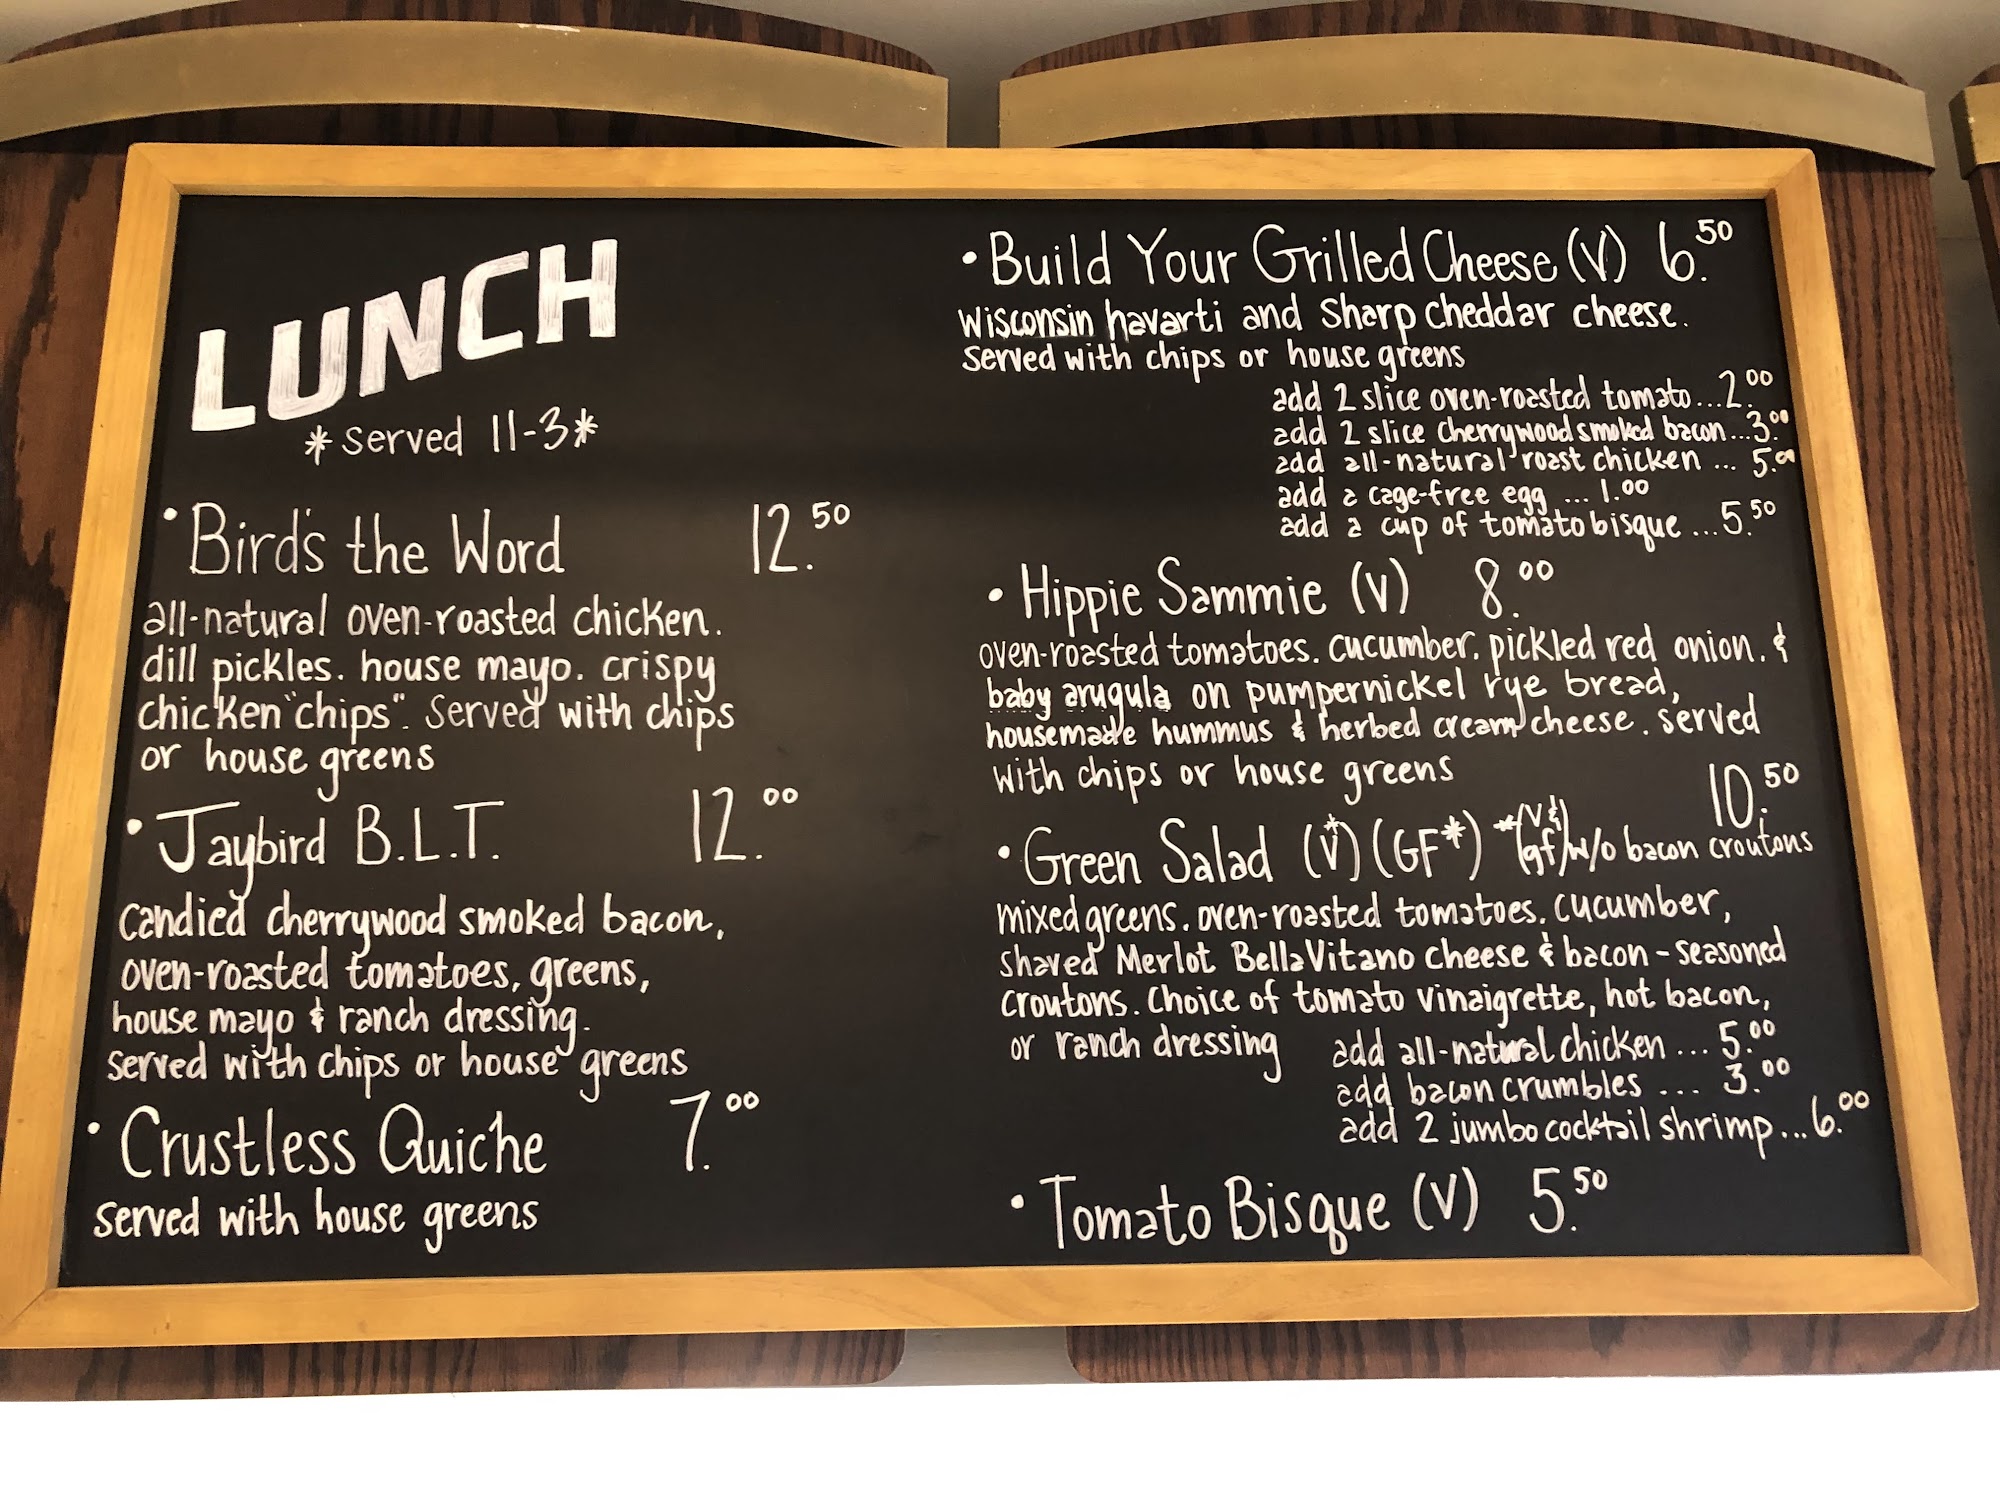 LUNCH
*served 11-3*
• Bird's the Word 12.50
all-natural oven-roasted chicken.
dill pickles. house mayo. crispy
chicken "chips". Served with chips
or house greens
• Jaybird B.L.T. 12.00
candied cherrywood smoked bacon,
oven-roasted tomatoes, greens,
house mayo & ranch dressing.
served with chips or house greens
• Crustless Quiche 7.00
served with house greens
• Build Your Grilled Cheese (V) 6.50
Wisconsin havarti and sharp cheddar cheese.
served with chips or house greens
add 2 slice oven-roasted tomato...2.00
add 2 slice cherrywood smoked bacon...3.00
add all-natural roast chicken ... 5.00
add a cage-free egg ... 1.00
add a cup of tomato bisque ...5.50
• Hippie Sammie (V) 8.00
oven-roasted tomatoes. cucumber. pickled red onion. &
baby arugula on pumpernickel rye bread,
housemade hummus & herbed cream cheese. served
with chips or house greens
10.50
• Green Salad (V*) (GF*) *(V & gf) w/o bacon croutons
mixed greens. oven-roasted tomatoes. cucumber,
shaved Merlot BellaVitano cheese & bacon-seasoned
croutons. choice of tomato vinaigrette, hot bacon,
or ranch dressing
add all-natural chicken ... 5.00
add bacon crumbles ... 3.00
add 2 jumbo cocktail shrimp...6.00
• Tomato Bisque (V) 5.50